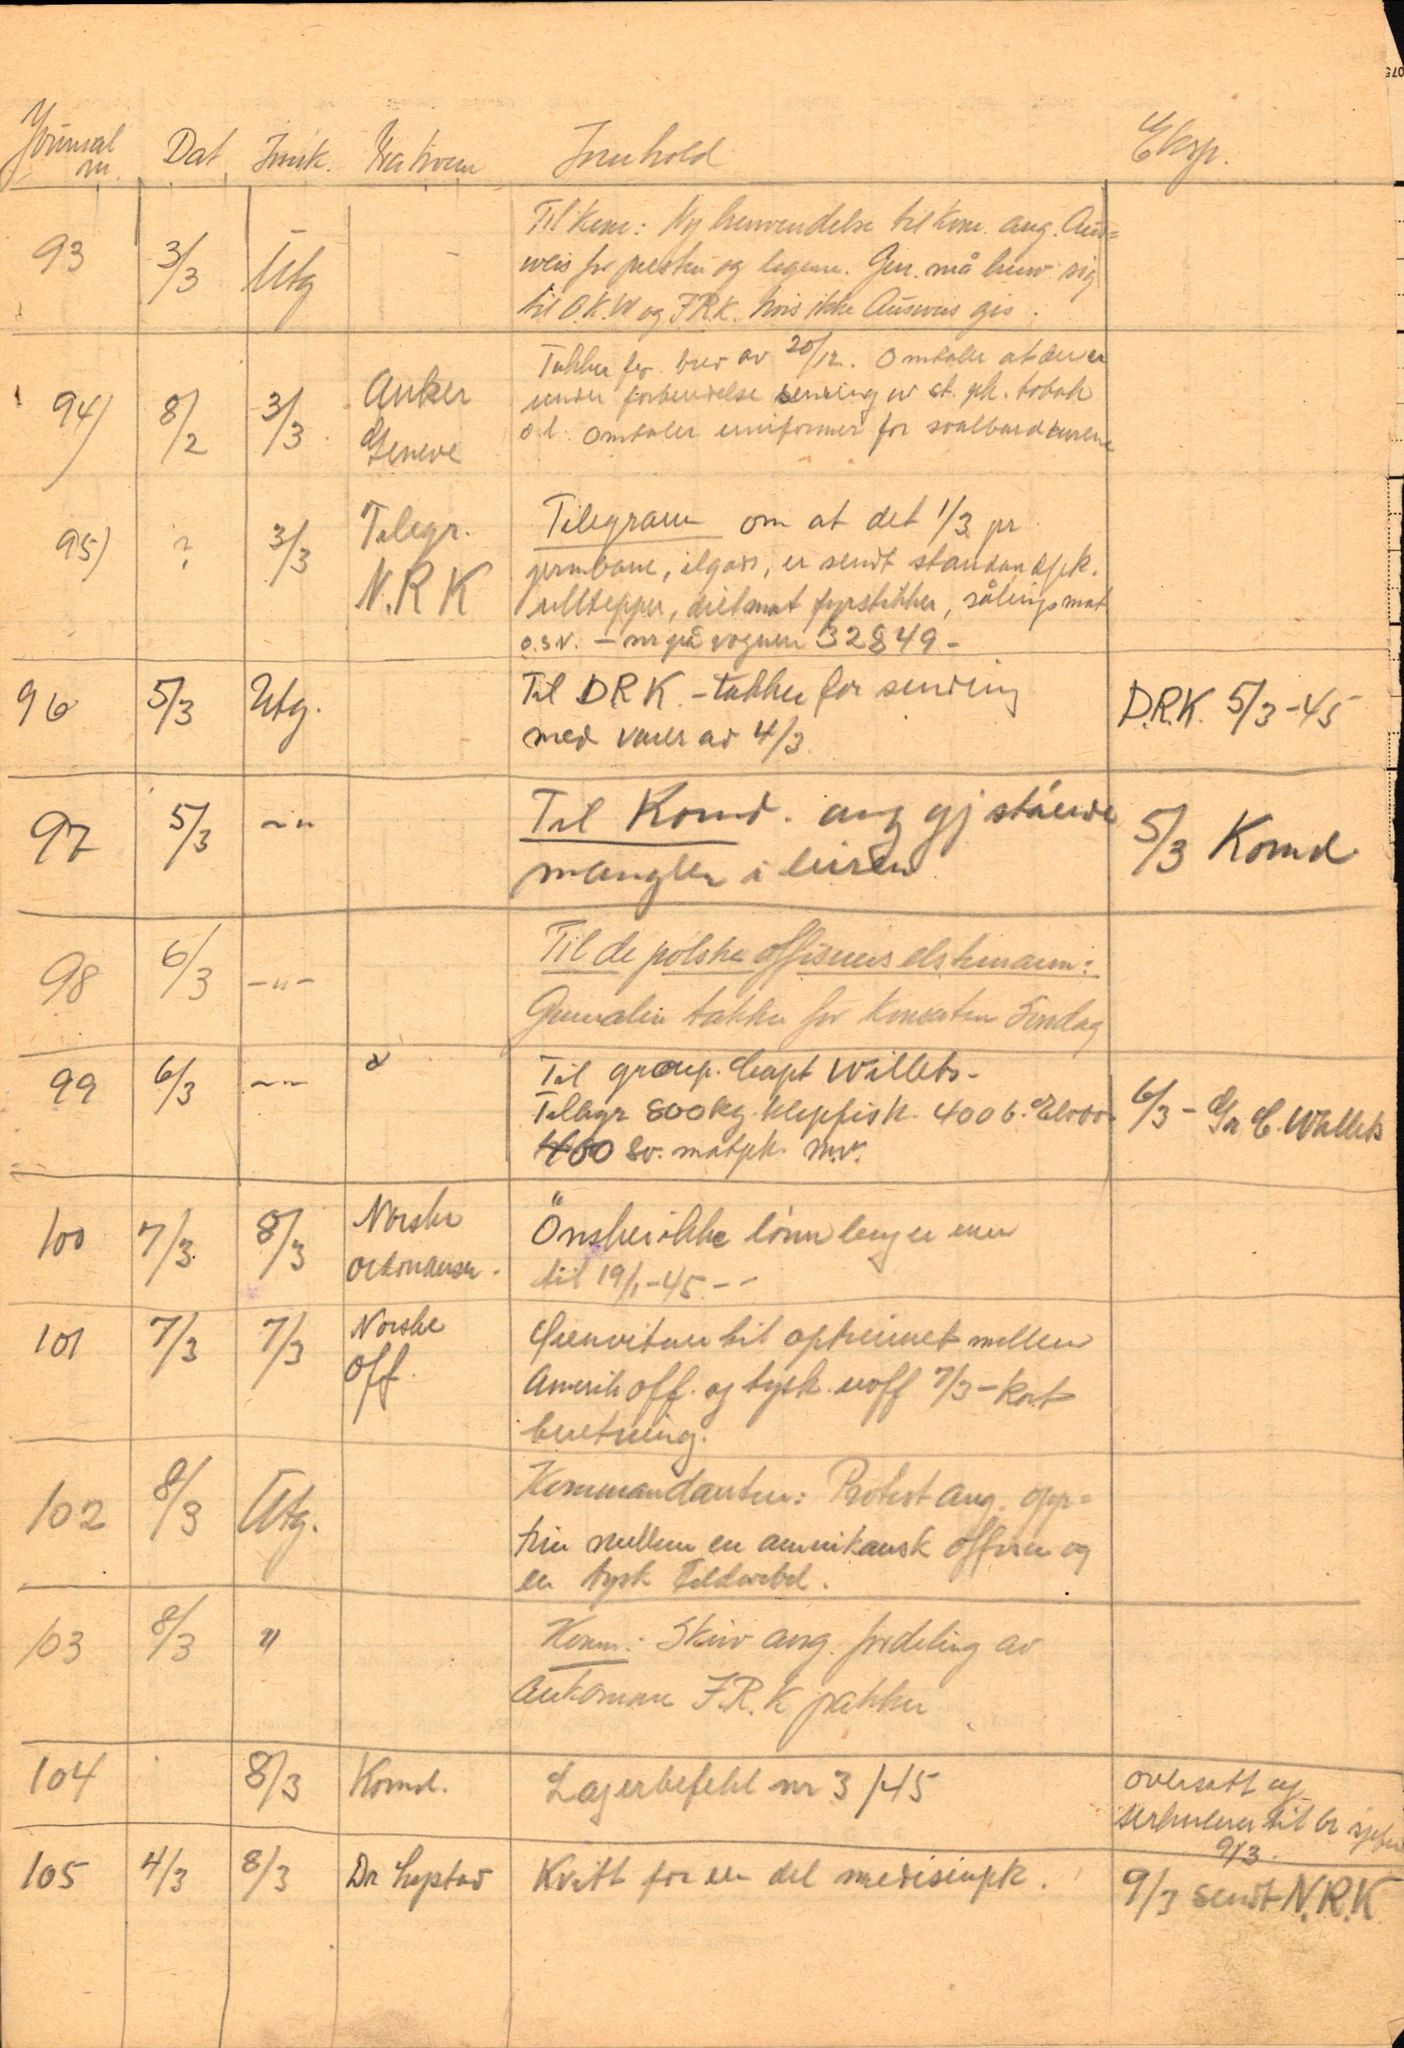 Journal nr. Dat Innk. Fra hvem Innhold Eksp.
93 3/3 Utg - Til Kom: Ny henvendelse til Kom. ang. Aus=
weis for prester og legene. Gen. må henv. sig
til O.K.W og I.R.K. hvis ikke Ausweis gis.
94) 8/2 3/3 Anker Geneve Takker for brev av 20/12. Omtaler at der er
under forberedelse sending av st. pk. tobak
o.l. Omtaler uniformer for svalbardkarene
95) ? 3/3 Telegr. N.R.K Telegram om at det 1/3 pr
jernbane, ilgods, er sendt standardpk.
ulltepper, dietmat fyrstikker, sålingsmat
o.s.v. - nr på vognen 32849 -
96 5/3 Utg. Til D.R.K. - takker for sending
med varer av 4/3. D.R.K. 5/3-45
97 5/3 -"- Til Komd. ang gjstående
mangler i leiren 5/3 Komd
98 6/3 -"- Til de polske offiserers
Generalen takker for konserten Søndag
99 6/3 -"- Til group. Capt Willets -
Tilbyr 800 kg. klippfisk. 400 b.
400 Sv. matpk. m.v. 6/3 - Gr C. Willets
100 7/3 8/3 Norske ordonanser. Önsker ikke lönn lenger enn
til 19/1-45 - -
101 7/3 7/3 Norske Off. Öienvitner til optrinnet mellem
Amerik off. og tysk. uoff 7/3 - Kort
beretning.
102 8/3 Utg. Kommandanten: Protest ang. opp=
trin mellem en amerikansk offiser og
en tysk Feldwebel.
103 8/3 " Komm: Skriv ang. fordeling av
ankomne I.R.K pakker
104 8/3 Komd. Lagerbefehl nr 3/45 oversatt og
sirkulerer til br sjefer
9/3.
105 4/3 8/3 Dr Kvitt for en del medisinpk. 9/3 sendt N.R.K